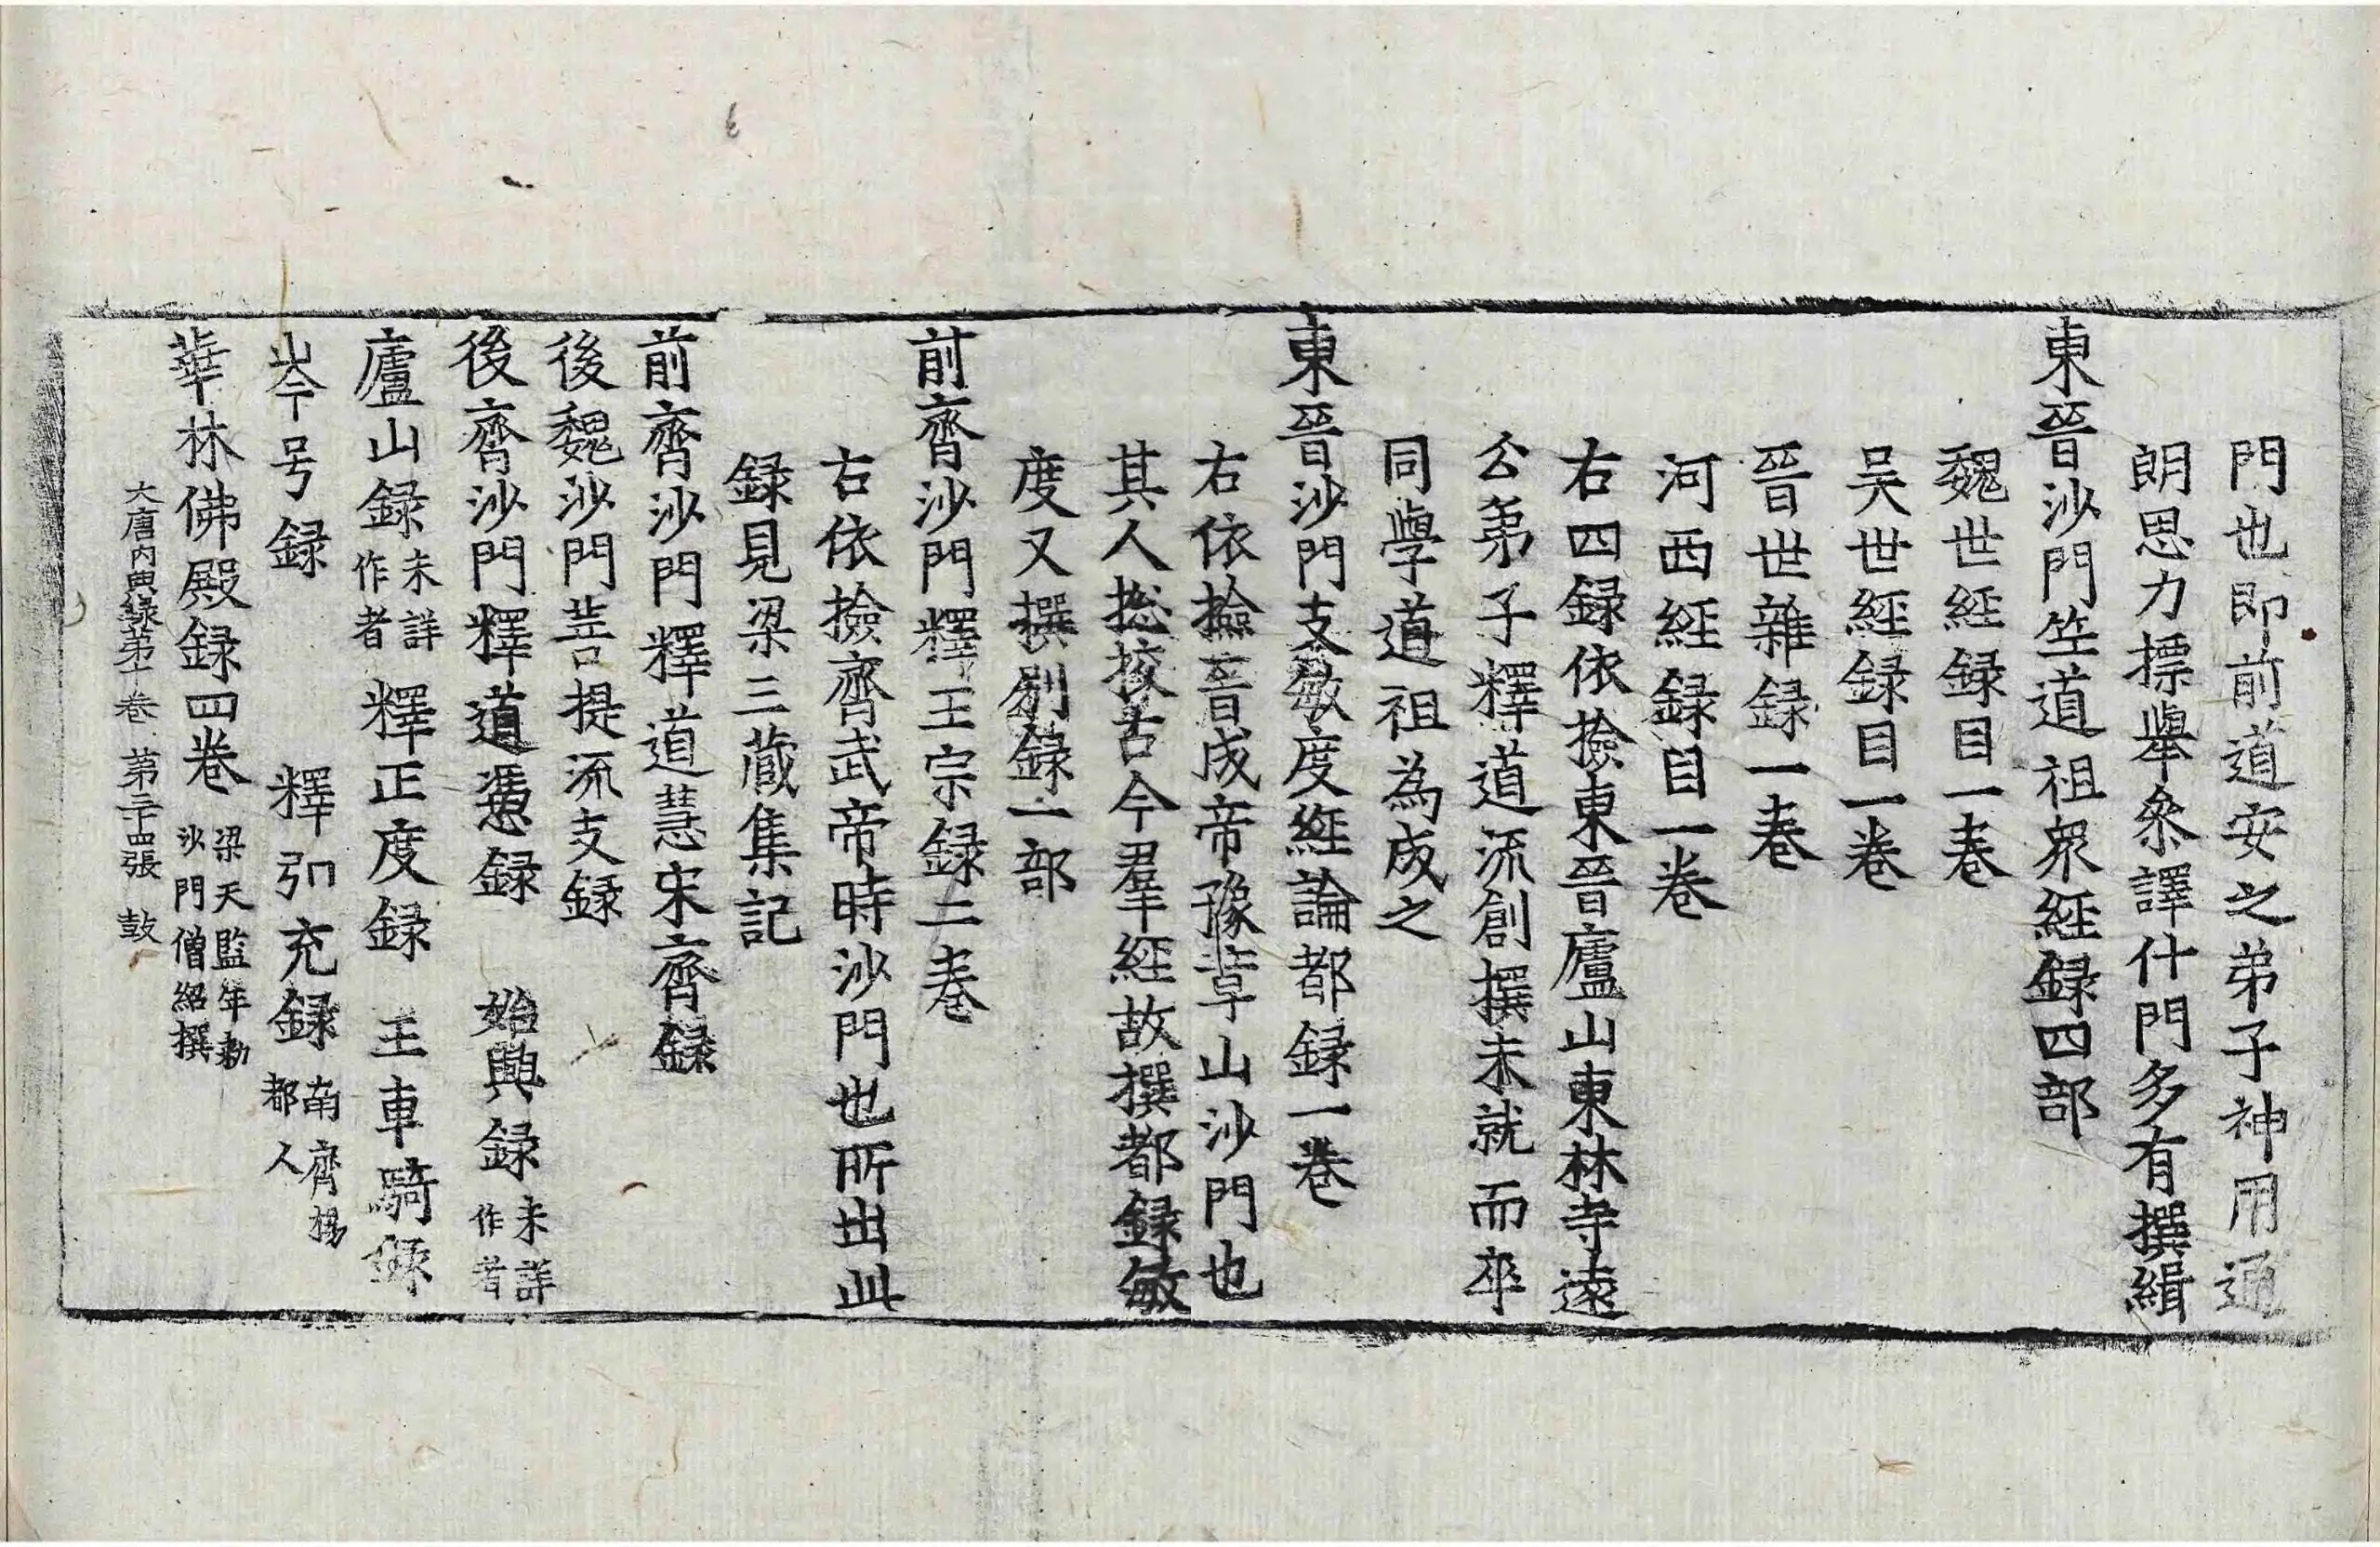 門也即前道安之弟子神用通
朗思力摽擧叅譯什門多有撰緝
東晉沙門竺道祖衆經録四部
魏世經録目一巻
吴世經録目一巻
晉世雜録一巻
河西經録目一巻
右四録依撿東晉廬山東林寺遠
公弟子釋道流創撰未就而卒
同學道祖為成之
東晉沙門支敏度經論都録一巻
右依撿晉成帝豫章山沙門也
其人揔挍古今羣經故撰都録敏
度又撰别録一部
前齊沙門釋王宗録二巻
右依撿齊武帝時沙門也所出此
録見梁三藏集記
前齊沙門釋道慧宋齊録
後魏沙門菩提流支録
後齊沙門釋道憑録 始興録 未詳作者
廬山録 未詳作者 釋正度録 王車騎録
岑号録 釋弘充録 南齊楊都人
華林佛殿録四巻 梁天監年勑沙門僧紹撰
大唐内典録第十巻 第二十四張 鼓